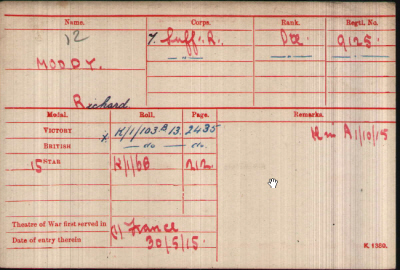 Name. Corps. Rank. Regtl. No.
12 7. Suff: R. Pte 9125.
MOODY. - " -
Richard
Medal. Roll. Page. Remarks.
VICTORY x K/1/103 B 13. 2435 K in A 1/10/15
BRITISH — do — do.
15 STAR K/1/6B 212
Theatre of War first served in (1) France
Date of entry therein 30/5/15.
K. 1380.